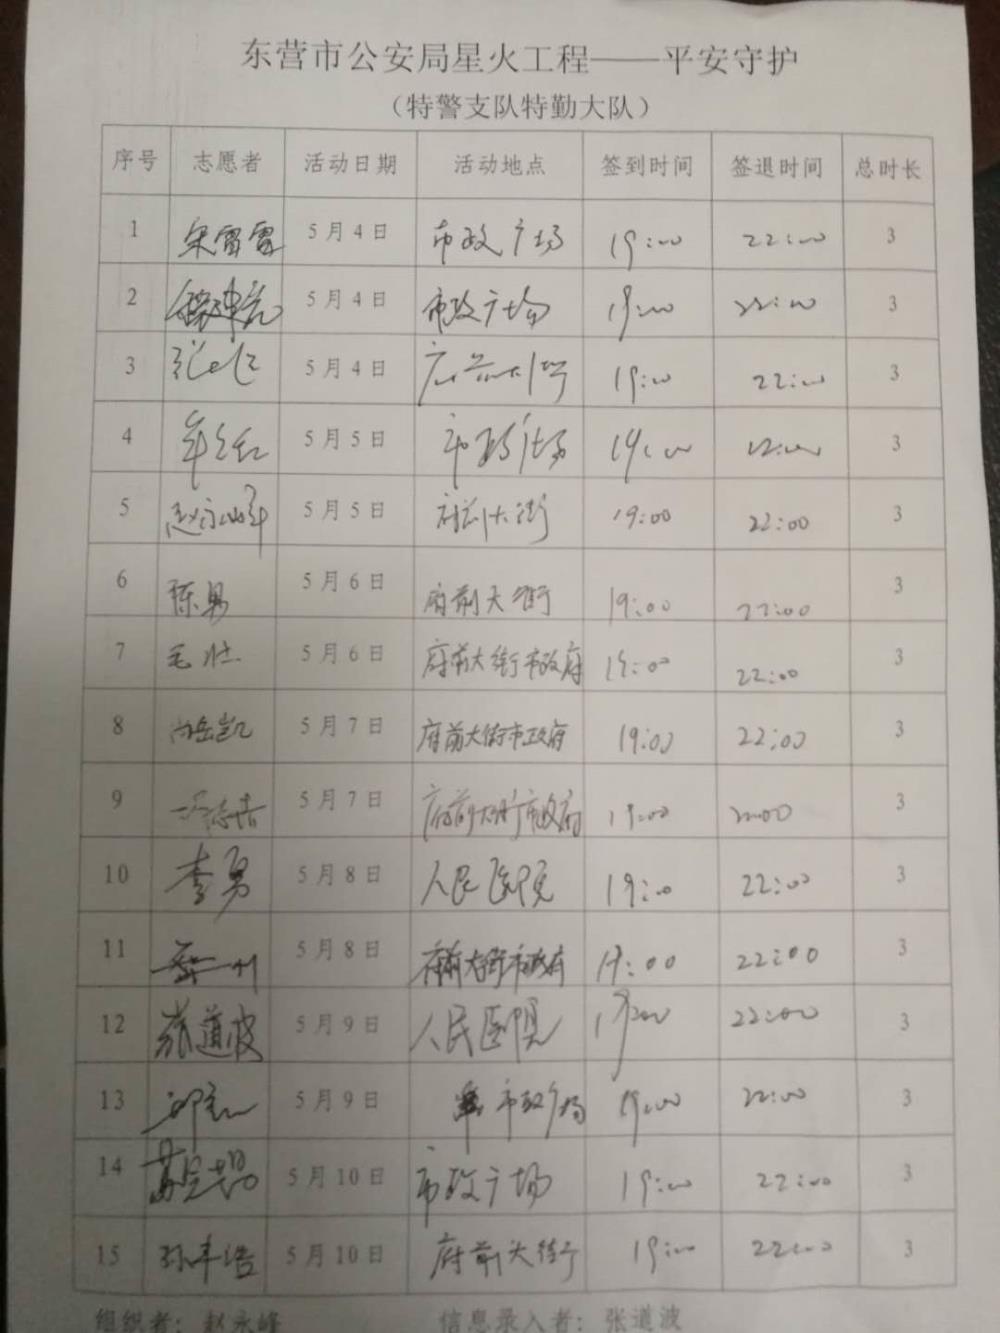 东营市公安局星火工程——平安守护
（特警支队特勤大队）
序号 志愿者 活动日期 活动地点 签到时间 签退时间 总时长
1 宋雷雷 5月4日 市政广场 19:00 22:00 3
2 5月4日 市政广场 19:00 22:00 3
3 5月4日 府前大街 19:00 22:00 3
4 5月5日 市政广场 19:00 22:00 3
5 赵永峰 5月5日 府前大街 19:00 22:00 3
6 陈勇 5月6日 府前大街 19:00 22:00 3
7 毛壮 5月6日 府前大街市政府 19:00 22:00 3
8 尚岳凯 5月7日 府前大街市政府 19:00 22:00 3
9 5月7日 府前大街市政府 19:00 22:00 3
10 李勇 5月8日 人民医院 19:00 22:00 3
11 5月8日 府前大街市政府 19:00 22:00 3
12 张道波 5月9日 人民医院 19:00 22:00 3
13 5月9日 市政广场 19:00 22:00 3
14 5月10日 市政广场 19:00 22:00 3
15 孙丰浩 5月10日 府前大街 19:00 22:00 3
组织者：赵永峰 信息录入者：张道波